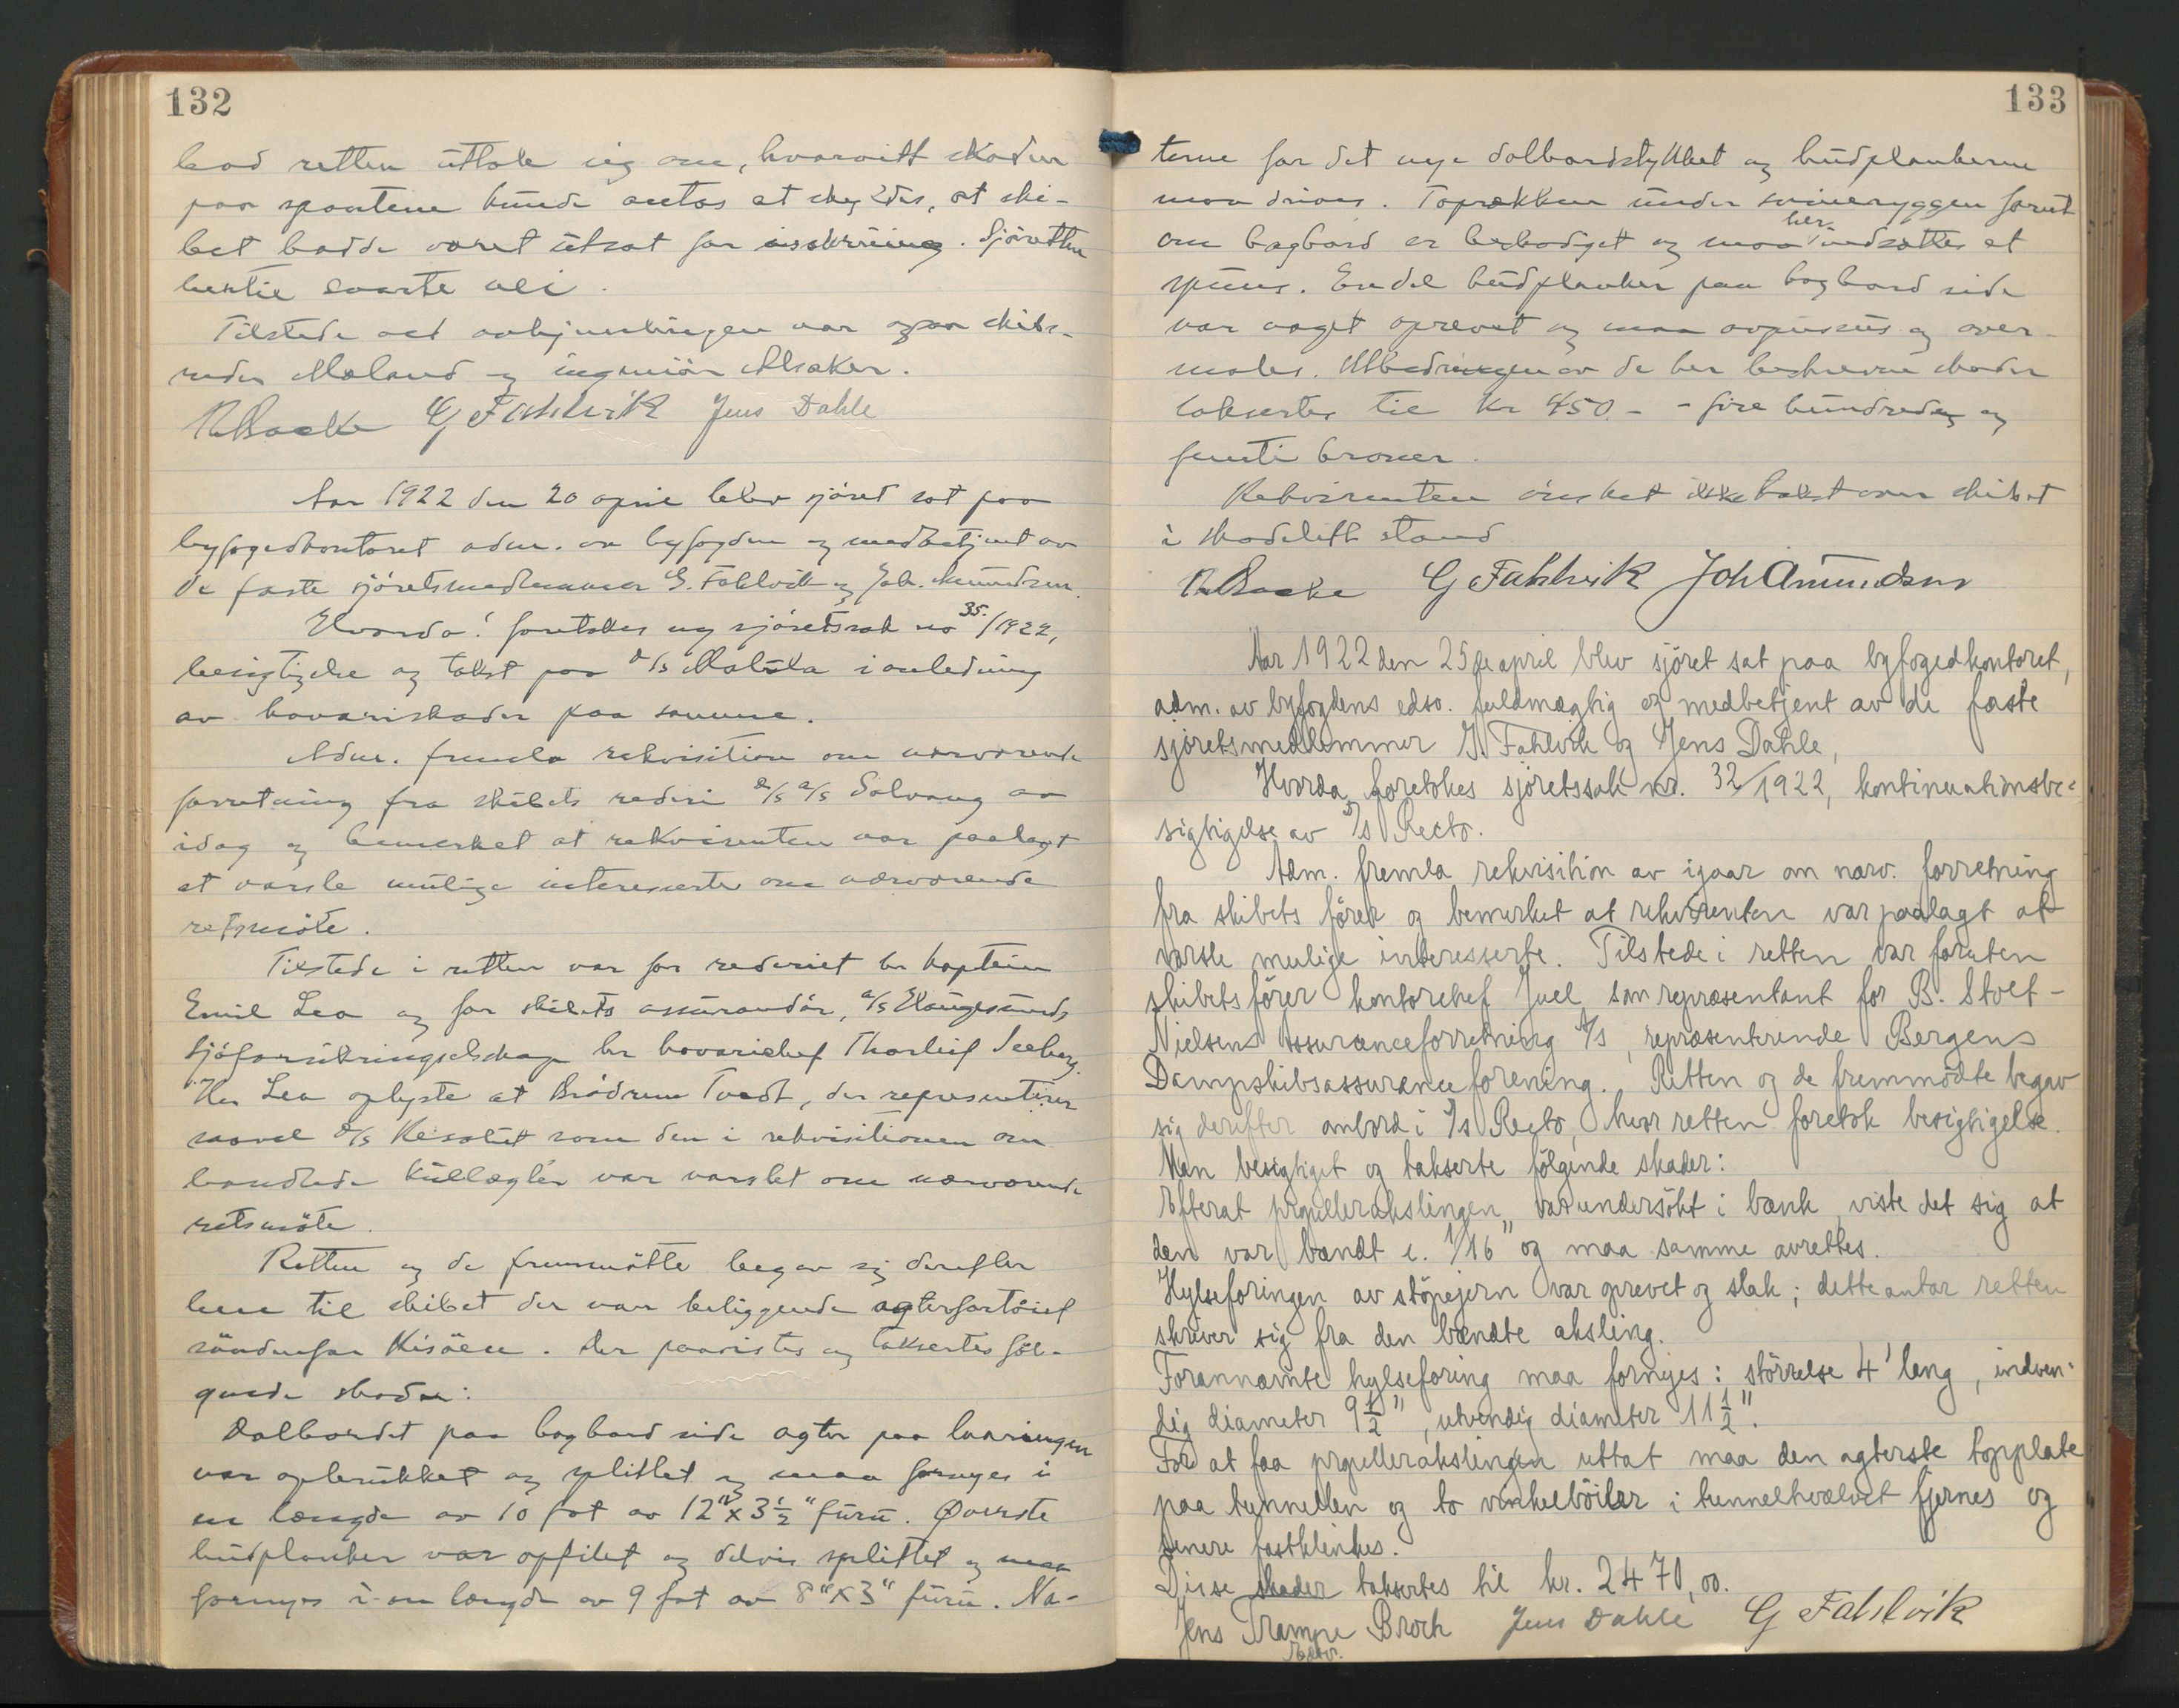 132
bad retten uttale sig om, hvorvitt skaden
paa spantene kunde antas at skyldes, at ski-
bet hadde været utsat for isskruing. Sjøretten
hertil svarte nei.
Tilstede ved avhjemlingen var ogsaa skibs-
reder Mæland og ingeniør Alsaker.
R Backe G Fahlvik Jens Dahle
Aar 1922 den 20 april blev sjøret sat paa
byfogedkontoret adm. av byfogden og medbetjent av
de faste sjøretsmedlemmer G. Fahlvik og Joh. Amundsen.
Hvorda! foretokes ny sjøretssak no 35/1922,
besigtigelse og takst paa d/s Malska i anledning
av havariskader paa samme.
Adm. fremla rekvisition om nærværende
forretning fra skibets rederi d/s a/s Solvang av
idag og bemerket at rekvirenten var paalagt
at varsle mulige interesserte om nærværende
retsmöte.
Tilstede i retten var for rederiet hr kaptein
Emil Lea og for skibets assurandör, a/s Haugesunds
Sjöforsikringselskap hr havarichef Thorleif Seeberg.
Hr Lea oplyste at Brödrene Tvedt, der representerer
saavel d/s Resolut som den i rekvisitionen om
handlede kullægter var varslet om nærværende
retsmöte.
Retten og de fremmötte begav sig derefter
hen til skibet der var beliggende agterfortöiet
söndenfor Risöen. Der paavistes og taksertes föl-
gende skader:
Dolbordet paa bagbord side agter paa laaringen
var opbrukket og splittet og maa fornyes i
en længde av 10 fot av 12" x 3 1/2" furu. Øverste
hudplanker var opfilet og delvis splittet og maa
fornyes i en længde av 9 fot av 8" x 3" furu. Na-
133
terne for det nye dolbordstykket og hudplankerne
maa drives. Toprækken under svineryggen forut
om bagbord er beskadiget og maa her indsættes et
spuns. En del hudplanker paa bagbord side
var noget oprevet og maa avpusses og over-
males. Utbedringen av de her beskrevne skader
taksertes til Kr 450.- - fire hundrede og
femti kroner.
Rekvirenten önsket ikke takst over skibet
i skadelidt stand
R Backe G Fahlvik Joh Amundsen
Aar 1922 den 25de april blev sjöret sat paa byfogedkontoret,
adm. av byfogdens edsv. fuldmægtig og medbetjent av de faste
sjöretsmedlemmer G. Fahlvik og Jens Dahle,
Hvorda foretokes sjöretssak nr. 32/1922, kontinuationsbe-
sigtigelse av d/s Recto.
Adm. fremla rekvisition av igaar om nærv. forretning
fra skibets förer og bemerket at rekvirenten var paalagt at
varsle mulige interesserte. Tilstede i retten var foruten
skibets förer kontorchef Juel som repræsentant for B. Stolt-
Nielsens Assuranceforretning A/S, repræsenterende Bergens
Dampskibsassuranceforening. Retten og de fremmödte begav
sig derefter ombord i d/s Recto, hvor retten foretok besigtigelse.
Man besigtiget og takserte fölgende skader:
Efterat propellerakslingen var undersökt i bænk, viste det sig at
den var bændt c. 1/16" og maa samme avrettes.
Hylseforingen av stöpejern var oprevet og slak; dette antar retten
skriver sig fra den bændte aksling.
Forannævnte hylseforing maa fornyes: störrelse 4' lang, indven-
dig diameter 9 1/2", utvendig diameter 11 1/2".
For at faa propellerakslingen uttat maa den agterste topplate
paa tunnellen og to vinkelböiler i tunnelhvælvet fjernes og
senere fastklinkes.
Disse skader taksertes til kr. 2470,00.
Jens Trampe Broch Jens Dahle G Fahlvik
edsv.